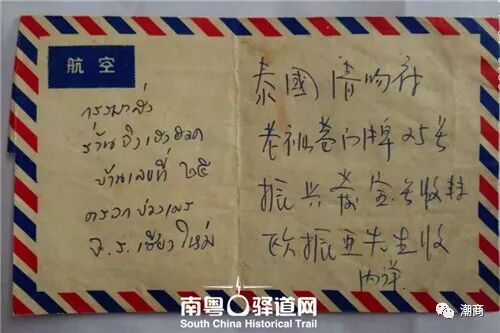 航空
กรุณาส่ง
ร้านจิ้นเฮงฮวด
บ้านเลขที่ ๒๕
ตรอก ข่วงเมรุ
เชียงใหม่
泰國清吻府
巷门牌25号
振兴發宝号收转
欧振亚先生收
内详.
南粤驿道网
South China Historical Trail
潮商